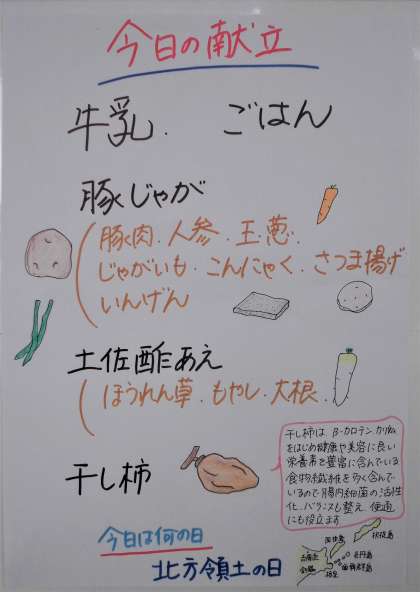 今日の献立
牛乳. ごはん
豚じゃが
豚肉.人参.玉葱.
じゃがいも.こんにゃく.さつま揚げ
いんげん
土佐酢あえ
ほうれん草.もやし.大根.
干し柿
干し柿は、β-カロテン、カリウム
をはじめ健康や美容に良い
栄養素を豊富に含んでいる
食物繊維を多く含んで
いるので腸内細菌の活性
化、バランスも整え、便通
にも役立ちます
今日は何の日
北方領土の日
国後島
択捉島
色丹島
歯舞群島